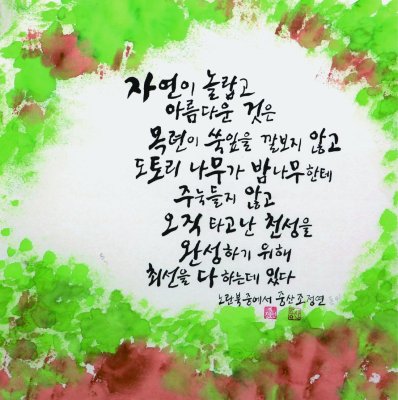 자연이 놀랍고
아름다운 것은
목련이 쑥잎을 깔보지 않고
도토리 나무가 밤나무한테
주눅들지 않고
오직 타고난 천성을
완성하기 위해
최선을 다하는데 있다
노란북 중에서 중산 조정연